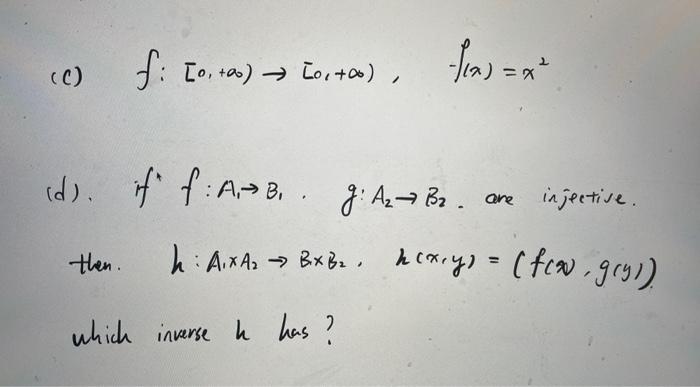 (c) f: [0,+∞) → [0,+∞), f(x) = x²
(d). if f: A₁→ B₁. g: A₂→ B₂. are injective.
then. h: A₁×A₂ → B×B₂, h(x,y) = (f(x), g(y))
which inverse h has?